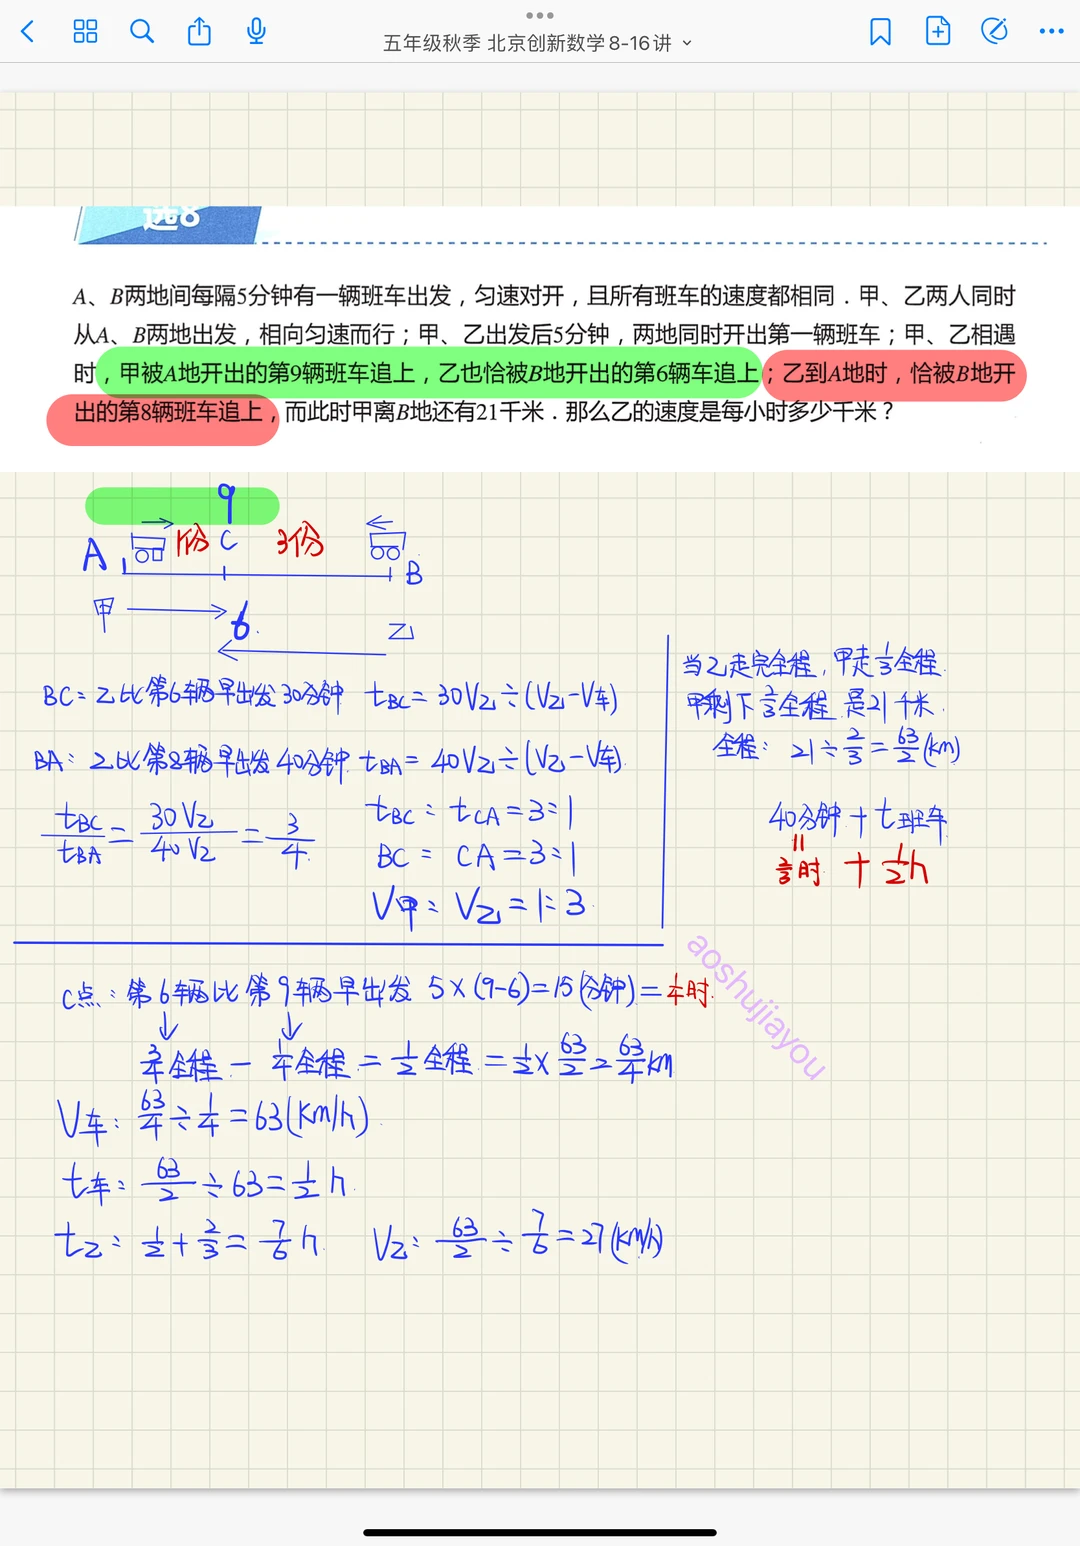 五年级秋季 北京创新数学8-16讲
选8
A、B两地间每隔5分钟有一辆班车出发，匀速对开，且所有班车的速度都相同．甲、乙两人同时
从A、B两地出发，相向匀速而行；甲、乙出发后5分钟，两地同时开出第一辆班车；甲、乙相遇
时，甲被A地开出的第9辆班车追上，乙也恰被B地开出的第6辆车追上；乙到A地时，恰被B地开
出的第8辆班车追上，而此时甲离B地还有21千米．那么乙的速度是每小时多少千米？
9
A 1份 C 3份 B
甲 6 乙
BC：乙比第6辆早出发30分钟 t_BC = 30V乙÷(V乙-V车)
BA：乙比第8辆早出发40分钟 t_BA = 40V乙÷(V乙-V车)
t_BC/t_BA = 30V乙/40V乙 = 3/4
t_BC : t_CA = 3:1
BC : CA = 3:1
V甲 : V乙 = 1:3
当乙走完全程，甲走1/3全程
甲剩下2/3全程 是21千米
全程：21÷2/3=63/2(km)
40分钟+t班车
=
2/3时 + 1/2h
C点：第6辆比第9辆早出发 5×(9-6)=15(分钟)=1/4时
3/4全程 - 1/4全程 = 1/2全程 = 1/2×63/2=63/4km
V车：63/4÷1/4=63(km/h)
t车：63/2÷63=1/2h
t乙：1/2+2/3=7/6h V乙：63/2÷7/6=27(km/h)
aoshujiayou